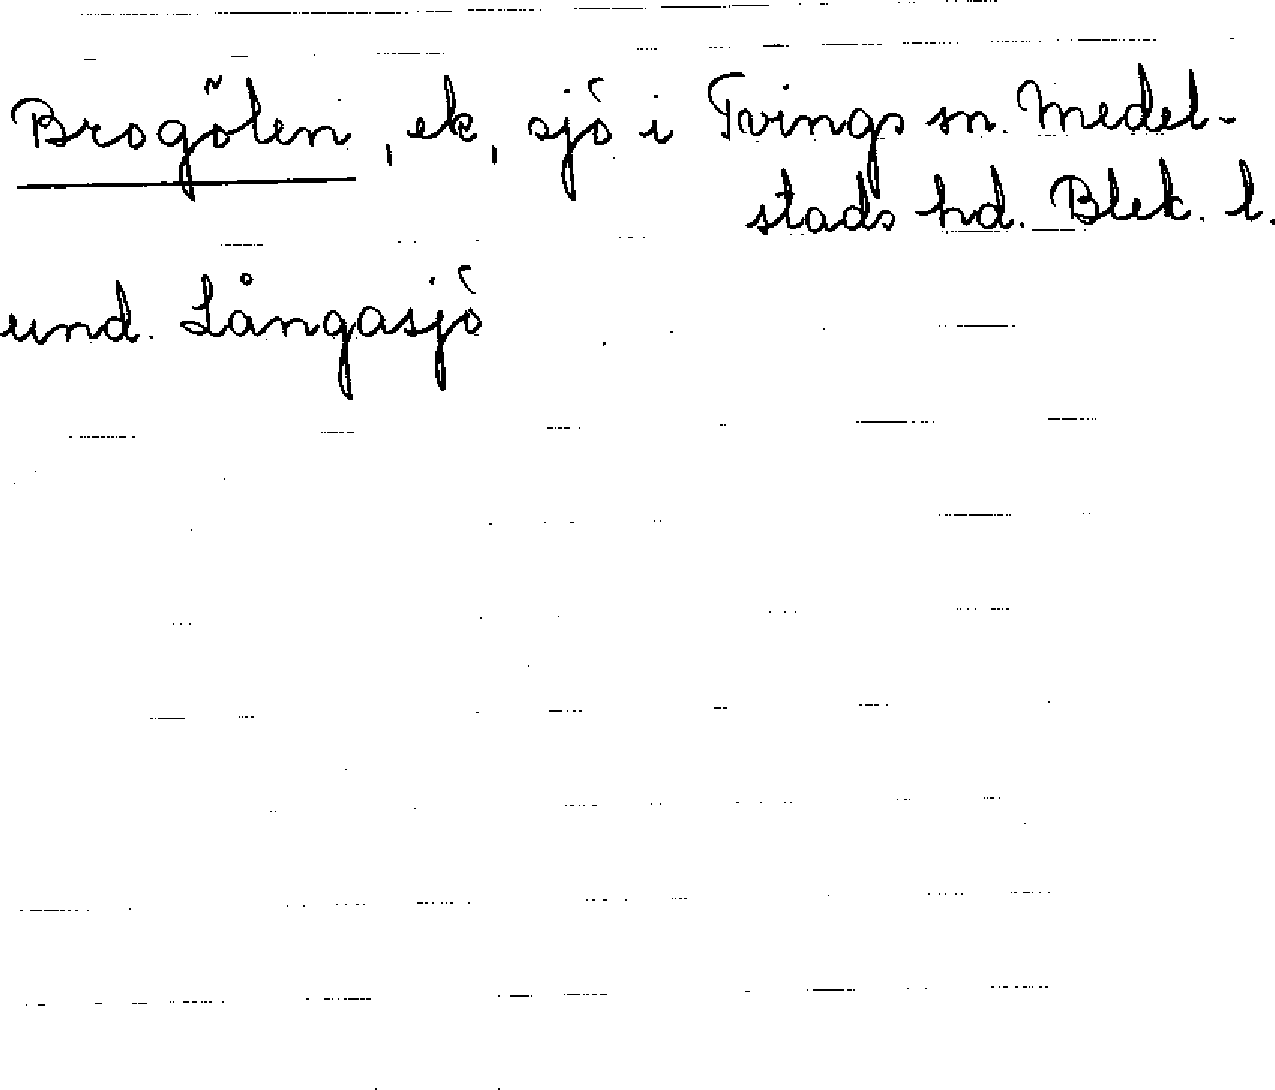 Brogölen, ek, sjö i Tvings sn. Medel-
stads hd. Blek. l.
und. Långasjö